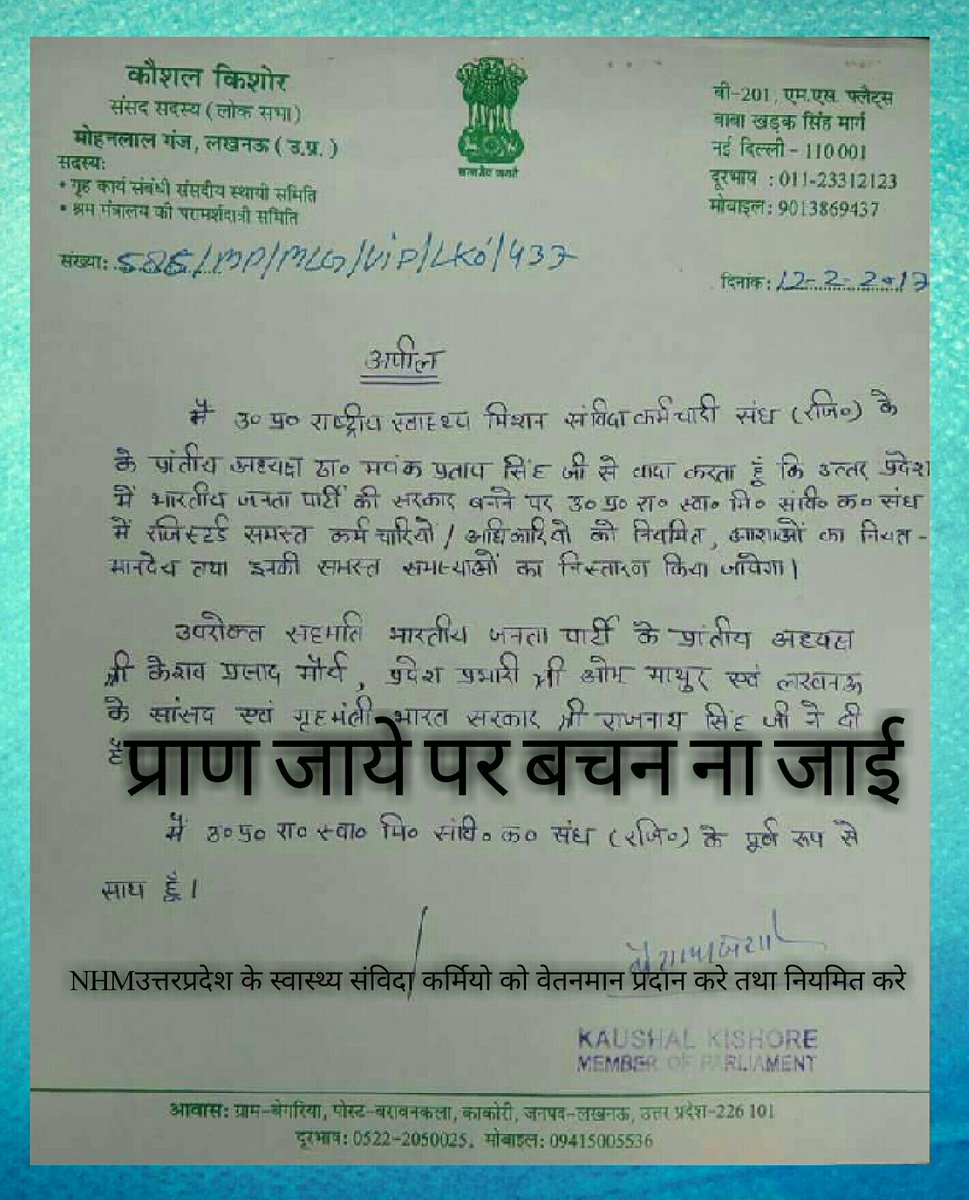 कौशल किशोर
संसद सदस्य (लोक सभा)
मोहनलाल गंज, लखनऊ (उ.प्र.)
सदस्य:
• गृह कार्य संबंधी संसदीय स्थायी समिति
• श्रम मंत्रालय की परामर्शदात्री समिति
सत्यमेव जयते
बी-201, एम.एस. फ्लैट्स
बाबा खड़क सिंह मार्ग
नई दिल्ली - 110 001
दूरभाष : 011-23312123
मोबाइल : 9013869437
संख्या: 586/MP/MLG/VIP/LKO/437
दिनांक: 12-2-2017
अपील
मैं उ० प्र० राष्ट्रीय स्वास्थ्य मिशन संविदा कर्मचारी संघ (रजि०) के
के प्रांतीय अध्यक्ष डा० मयंक प्रताप सिंह जी से वादा करता हूं कि उत्तर प्रदेश
में भारतीय जनता पार्टी की सरकार बनने पर उ० प्र० रा० स्वा० मि० संवि० क० संघ
में रजिस्टर्ड समस्त कर्मचारियो / अधिकारियो को नियमित, आशाओं का नियत-
मानदेय तथा इनकी समस्त समस्याओं का निस्तारण किया जायेगा।
उपरोक्त सहमति भारतीय जनता पार्टी के प्रांतीय अध्यक्ष
श्री केशव प्रसाद मौर्य, प्रदेश प्रभारी श्री ओम माथुर एवं लखनऊ
के सांसद एवं गृहमंत्री भारत सरकार श्री राजनाथ सिंह जी ने दी
है
प्राण जाये पर बचन ना जाई
मैं उ० प्र० रा० स्वा० मि० संवि० क० संघ (रजि०) के पूर्ण रूप से
साथ हूँ।
NHMउत्तरप्रदेश के स्वास्थ्य संविदा कर्मियो को वेतनमान प्रदान करे तथा नियमित करे
KAUSHAL KISHORE
MEMBER OF PARLIAMENT
आवास: ग्राम-बेगरिया, पोस्ट-बरावनकला, काकोरी, जनपद-लखनऊ, उत्तर प्रदेश-226 101
दूरभाष: 0522-2050025, मोबाइल: 09415005536